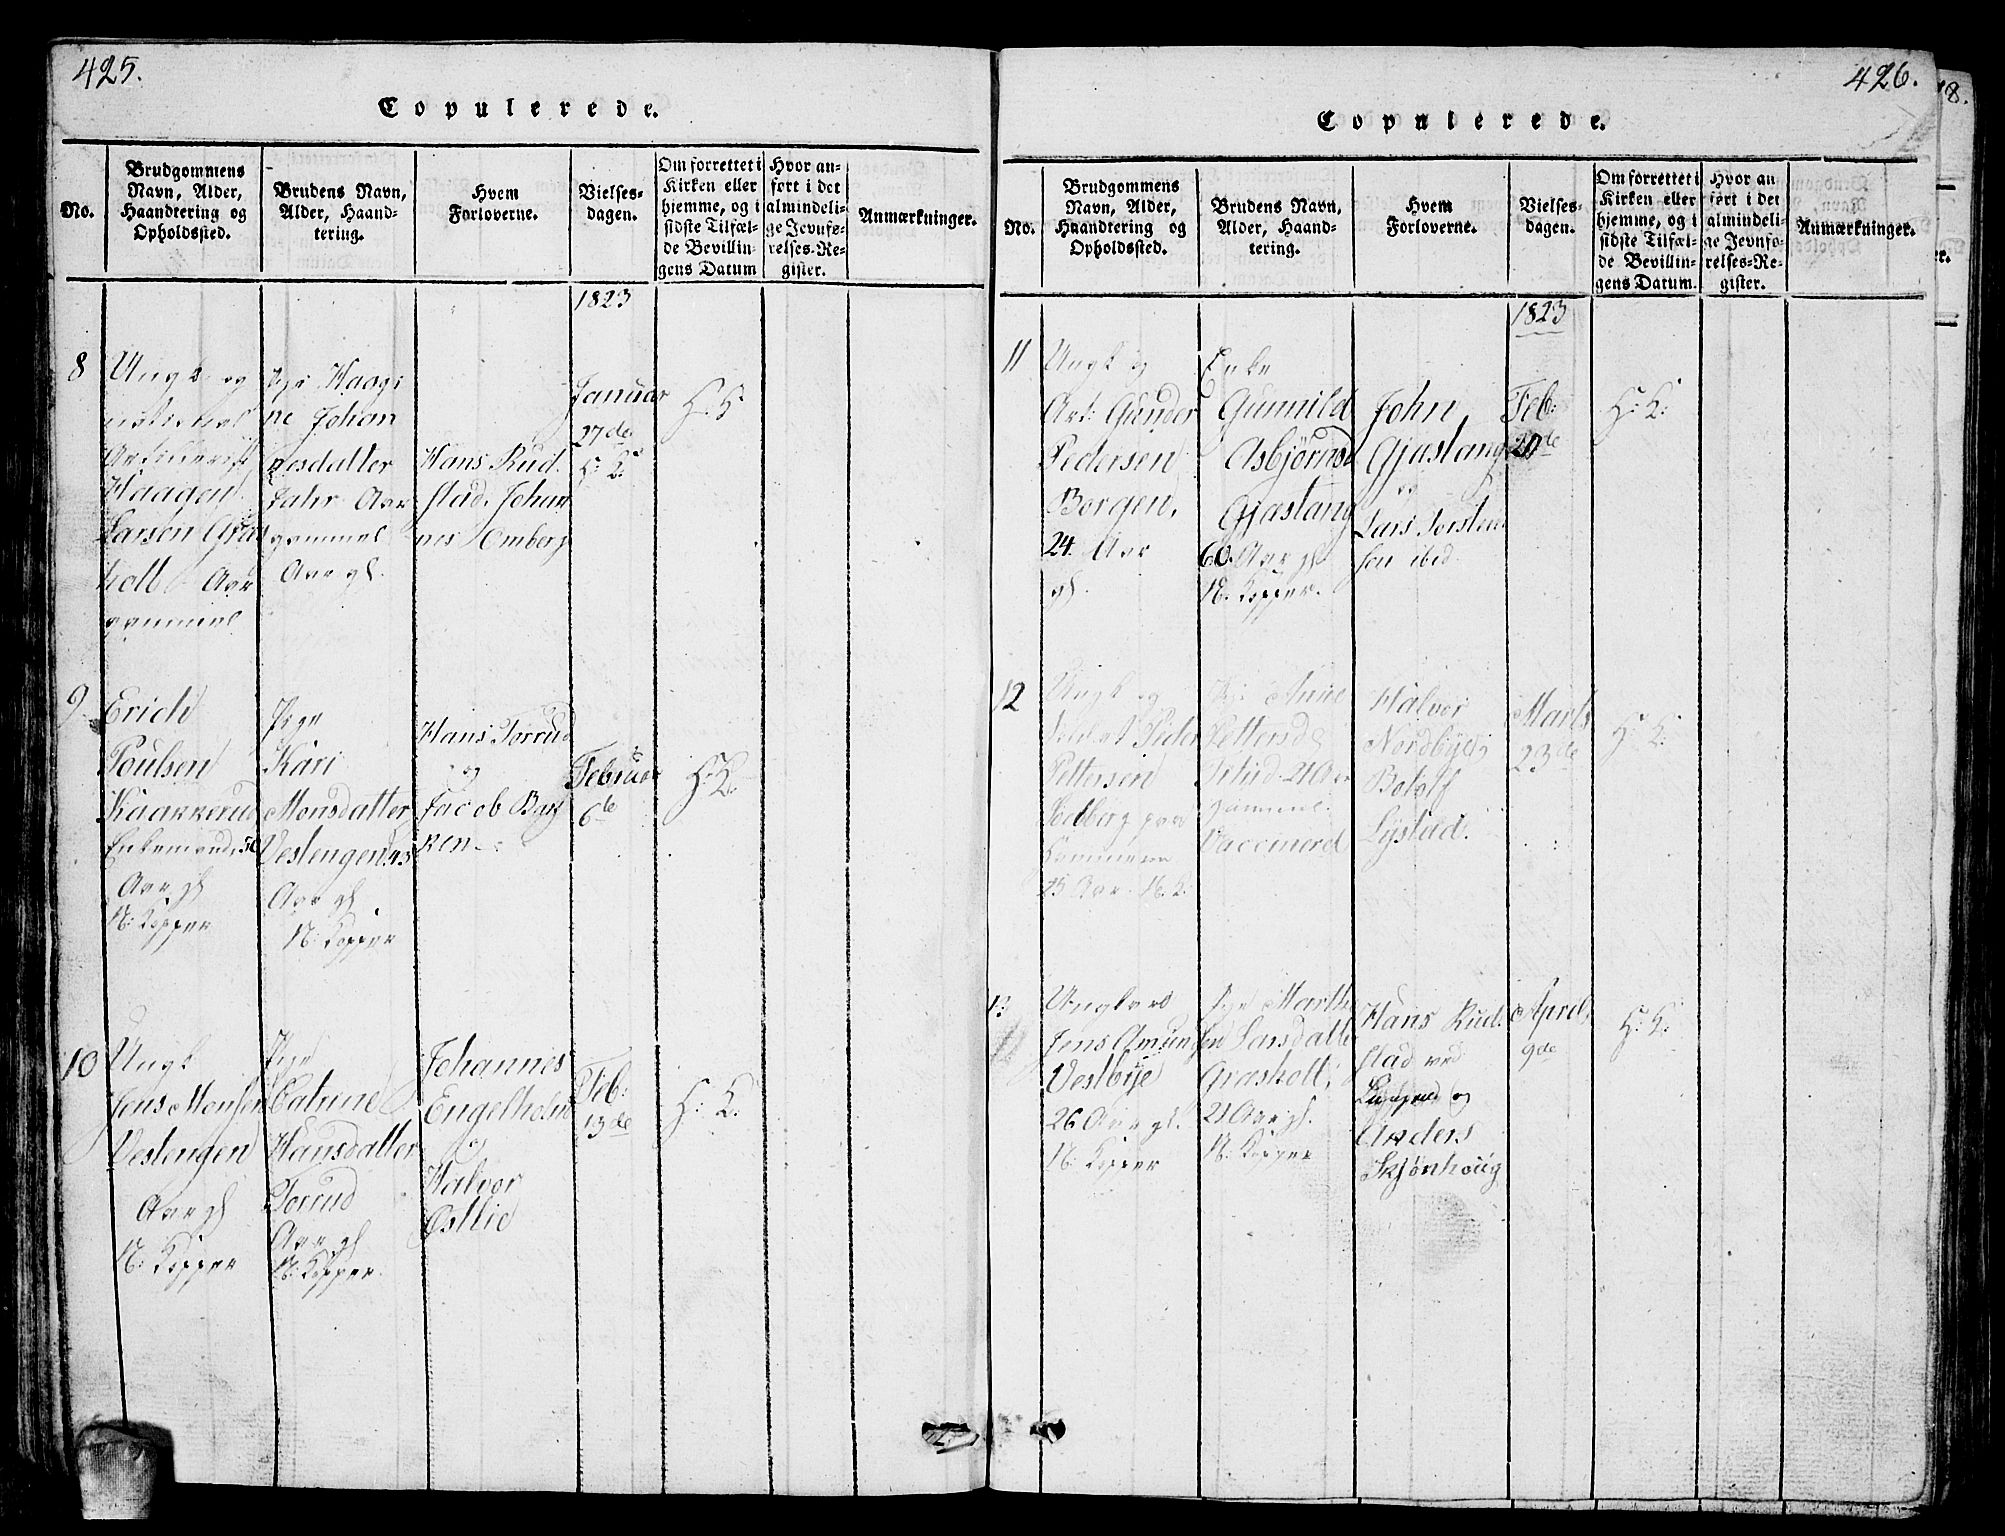 425.
Copulerede.
No.
Brudgommens
Navn, Alder,
Haandtering og
Opholdssted.
Brudens Navn,
Alder, Haand-
tering.
Hvem
Forloverne.
Vielses-
dagen.
Om forrettet i
Kirken eller
hjemme, og i
sidste Tilfæl-
de Bevillin-
gens Datum
Hvor an-
ført i det
almindeli-
ge Jevnfø-
relses-Re-
gister.
Anmærkninger.
1823
8
Ungk og
Haagen
Larsen Gras
holt Aar
gammel
Pige Haagi
ne Johan
nesdatter
Jahr Aar
gammel
Aar gl.
Hans Rud
stad. Johan
nes Omberg
Januar
27de
H: K:
9
Erich
Poulsen
Kaakkerud
Enkemand, 50
Aar gl
N: Kopper
Pige
Kari
Monsdatter
Vestengen 43
Aar gl
N: Kopper
Hans Torrud
og
Jacob Bak
ken
Februar
6te
H: K:
10
Ungk
Jens Monsen
Vestengen
Aar gl
N: Kopper
Pige
Catrine
Hansdatter
Torrud
Aar gl
N: Kopper
Johannes
Engelholm
og
Halvor
Østlie
Feb:
13de
H: K:
426.
Copulerede.
No.
Brudgommens
Navn, Alder,
Haandtering og
Opholdssted.
Brudens Navn,
Alder, Haand-
tering.
Hvem
Forloverne.
Vielses-
dagen.
Om forrettet i
Kirken eller
hjemme, og i
sidste Tilfæl-
de Bevillin-
gens Datum.
Hvor an
ført i det
almindeli-
ge Jevnfø-
relses-Re-
gister.
Anmærkninger.
1823
11
Ungk og
Art: Gunder
Pedersen
Borgen,
24. Aar
gl.
Enke
Gunnild
Asbjørnsd
Gjæstang
60. Aar gl
N. Kopper.
John
Gjæstang
og
Lars Torsten
sen ibid
Feb:
20de
H: K:
12
Ungk og
Soldat Peder
Pettersen
25 Aar. N. K.
Pige Anne
Pettersd
21 Aar
gammel.
Vaccinered
Halvor
Nordbye,
Botolf
Lystad.
Marts
23de
H: K:
13
Ungkarl
Jens Amundsen
Vestbye
26 Aar gl.
N: Kopper
Pige Marthe
Larsdatter
Grasholt,
21 Aar gl.
N: Kopper
Hans Rud
stad ved
og
Anders
Skjønhoug
April
9de
H: K: